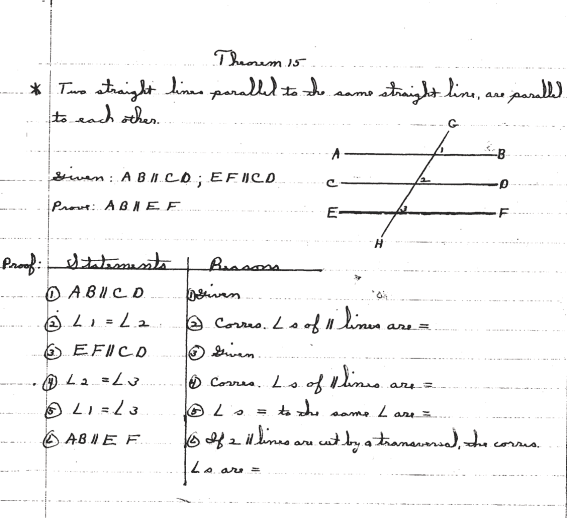 Theorem 15
* Two straight lines parallel to the same straight line, are parallel
to each other.
G
A 1 B
Given: AB ∥ CD ; EF ∥ CD
C 2 D
Prove: AB ∥ EF
E 3 F
H
Proof: Statements Reasons
① AB ∥ CD ① Given
② ∠1 = ∠2 ② Corres. ∠s of ∥ lines are =
③ EF ∥ CD ③ Given
④ ∠2 = ∠3 ④ Corres. ∠s of ∥ lines are =
⑤ ∠1 = ∠3 ⑤ ∠s = to the same ∠ are =
⑥ AB ∥ EF ⑥ If 2 ∥ lines are cut by a transversal, the corres.
∠s are =